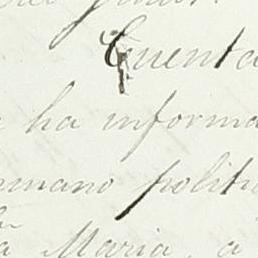 Cuenta
ha informa
mano politi
Maria, a